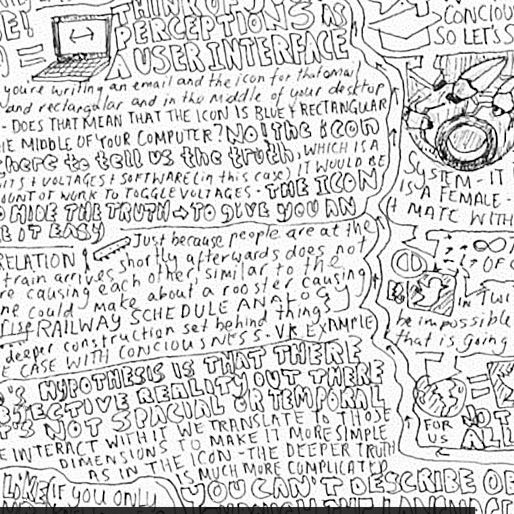 THINK OF YOUR
PERCEPTIONS AS
A USER INTERFACE
you're writing an email and the icon for that email
and rectangular and in the middle of your desktop
- DOES THAT MEAN THAT THE ICON IS BLUE & RECTANGULAR
THE MIDDLE OF YOUR COMPUTER? NO! the icon
there to tell us the truth, WHICH IS A
VOLTAGES & SOFTWARE (in this case) IT WOULD BE
AMOUNT OF WORK TO TOGGLE VOLTAGES - THE ICON
TO HIDE THE TRUTH → TO GIVE YOU AN
IT EASY
RELATION
Just because people are at the
shortly afterwards does not
train arrives
causing each other, similar to the
could make about a rooster causing
RAILWAY SCHEDULE ANALOGY
deeper construction set behind things
CASE WITH CONCIOUSNESS. VR EXAMPLE
HYPOTHESIS IS THAT THERE
OBJECTIVE REALITY OUT THERE
IT'S NOT SPACIAL OR TEMPORAL
INTERACT WITH IT WE TRANSLATE TO THOSE
DIMENSIONS TO MAKE IT MORE SIMPLE
AS IN THE ICON - THE DEEPER TRUTH
IS MUCH MORE COMPLICATED
LIKE (IF YOU ONLY
YOU CAN'T DESCRIBE
THE LANGUAGE
CONCIOUS
SO LET'S
SYSTEM - IT
IS A FEMALE -
MATE WITH
∞
? OF
IN TWI
be impossible
that is going
FOR
US
NOT
ALL